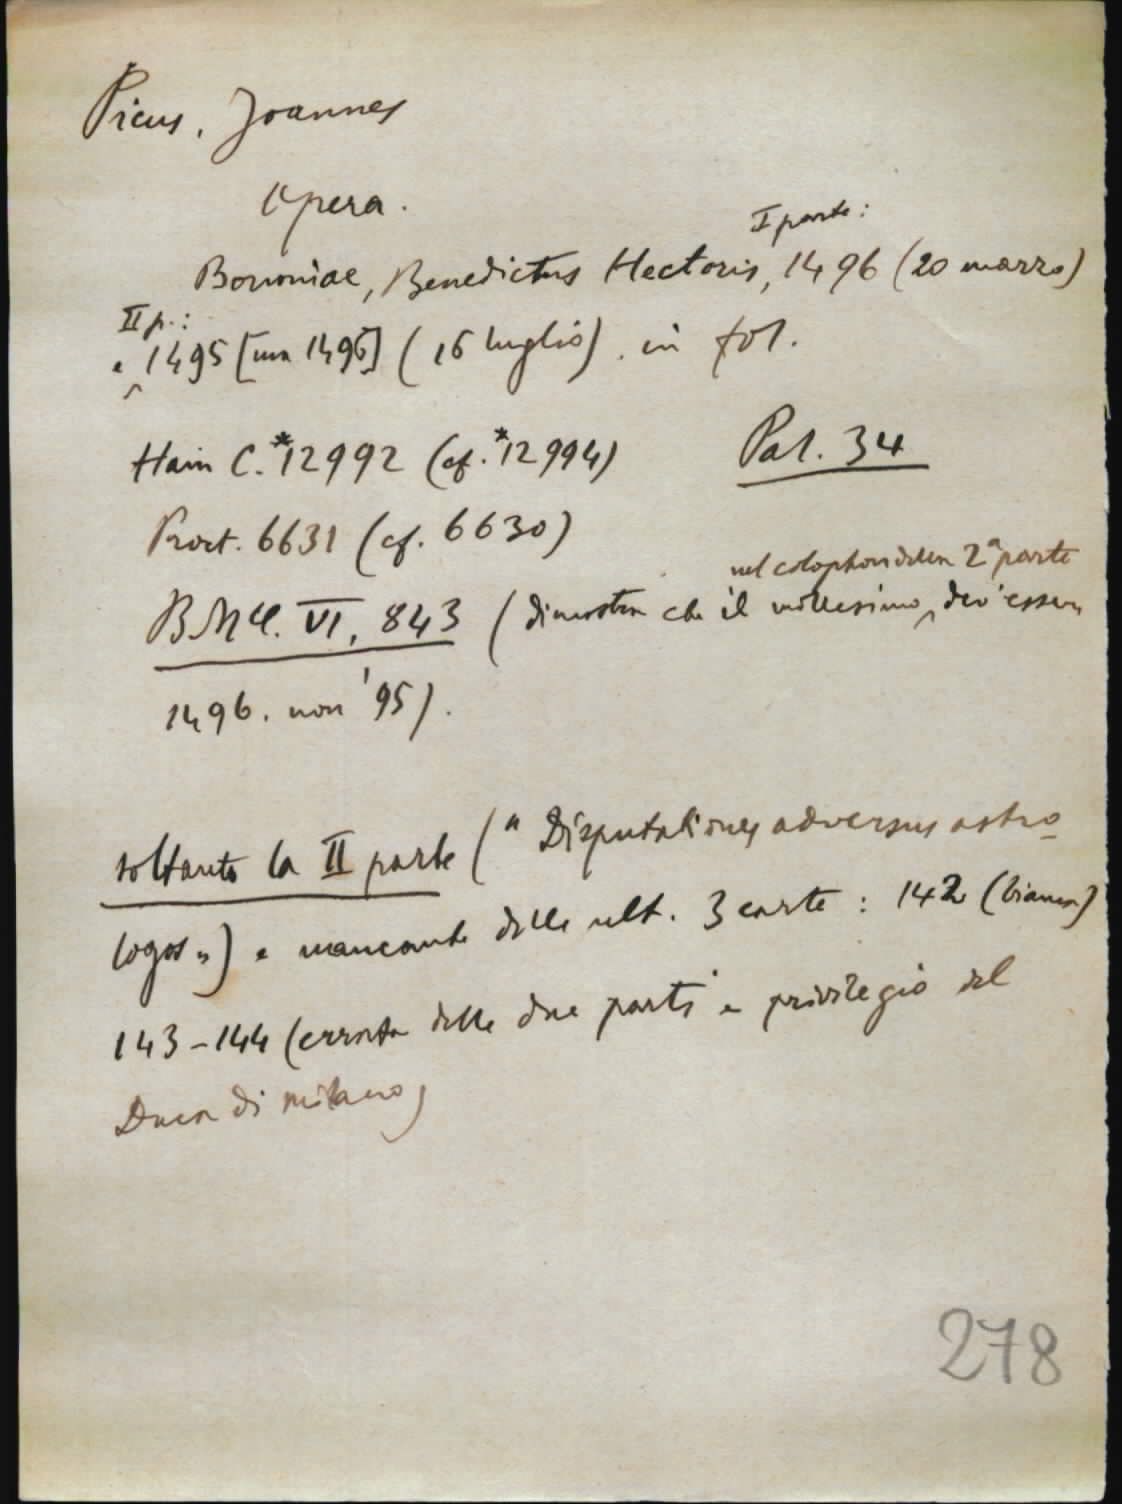 Picus, Joannes
Opera.
I parte:
Bononiae, Benedictus Hectoris, 1496 (20 marzo)
II p.:
e 1495 [ma 1496] (16 luglio). in fol.
Hain C.*12992 (cf.*12994)
Pal. 34
Proct. 6631 (cf. 6630)
nel colophon della 2ª parte
BMC. VI, 843 (dimostra che il millesimo dev'essere
1496. non '95).
soltanto la II parte ("Disputationes adversus astro-
logos") e mancante delle ult. 3 carte: 142 (bianca)
143-144 (errata delle due parti e privilegio del
Duca di Milano)
278